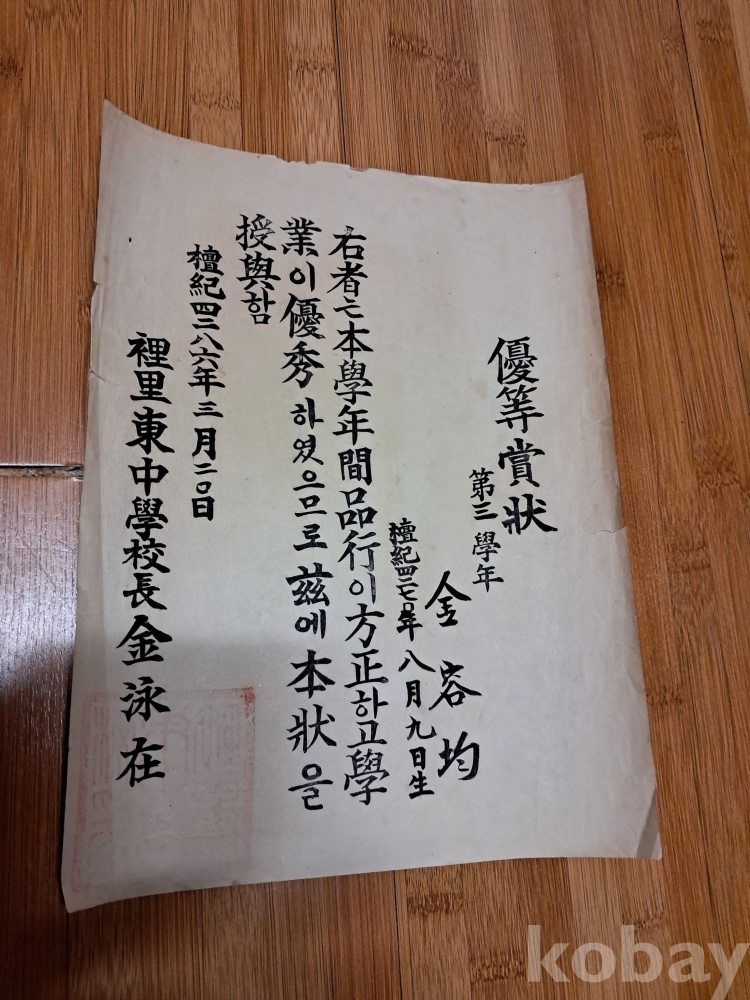 優等賞狀
第三學年
金容均
檀紀四二七〇年八月九日生
右者는本學年間品行이方正하고學
業이優秀하였으므로玆에本狀을
授與함
檀紀四二八六年三月二〇日
裡里東中學校長金泳在
kobay